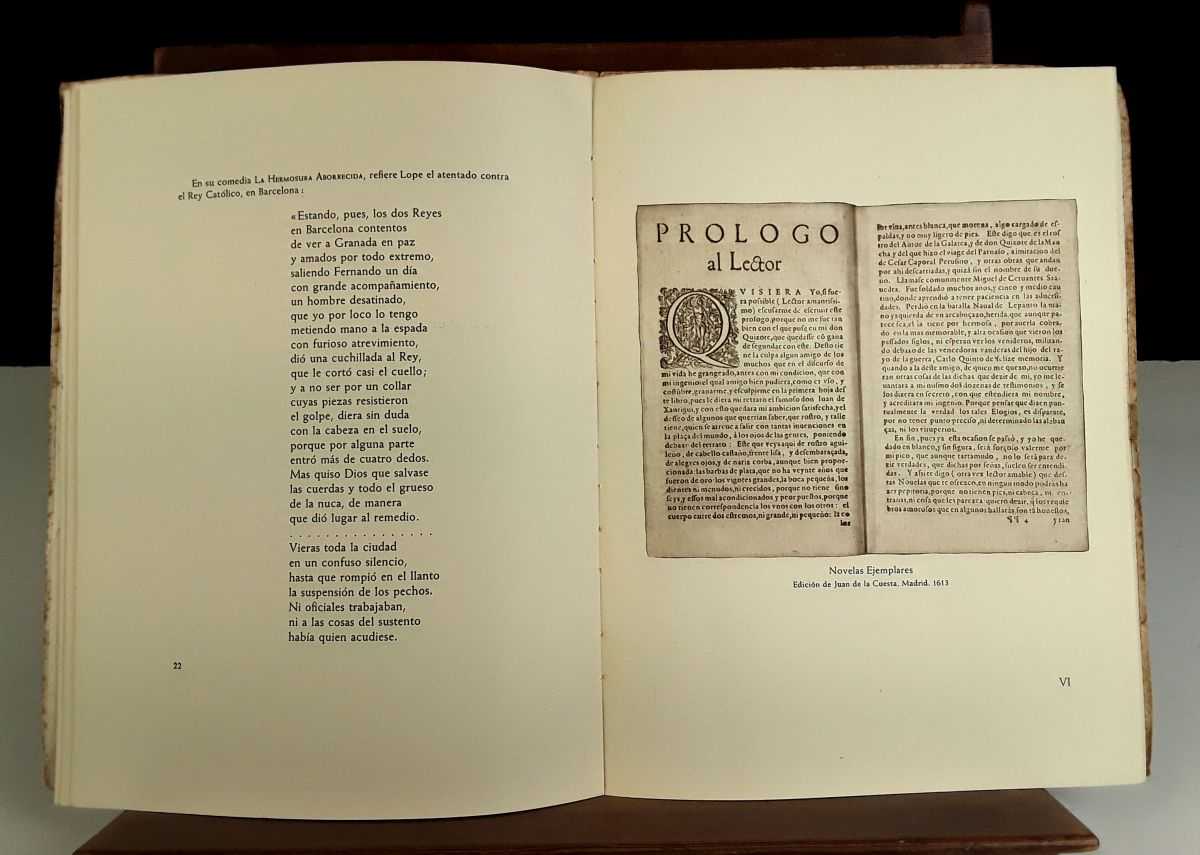 En su comedia LA HERMOSURA ABORRECIDA, refiere Lope el atentado contra
el Rey Católico, en Barcelona :
«Estando, pues, los dos Reyes
en Barcelona contentos
de ver a Granada en paz
y amados por todo extremo,
saliendo Fernando un día
con grande acompañamiento,
un hombre desatinado,
que yo por loco lo tengo
metiendo mano a la espada
con furioso atrevimiento,
dió una cuchillada al Rey,
que le cortó casi el cuello;
y a no ser por un collar
cuyas piezas resistieron
el golpe, diera sin duda
con la cabeza en el suelo,
porque por alguna parte
entró más de cuatro dedos.
Mas quiso Dios que salvase
las cuerdas y todo el grueso
de la nuca, de manera
que dió lugar al remedio.
. . . . . . . . . . . . . . . .
Vieras toda la ciudad
en un confuso silencio,
hasta que rompió en el llanto
la suspensión de los pechos.
Ni oficiales trabajaban,
ni a las cosas del sustento
había quien acudiese.
22
PROLOGO
al Lector
QVISIERA Yo, si fue
ra possible (Lector amantissi
mo) escusarme de escriuir este
prologo, porque no me fue tan
bien con el que puse en mi don
Quixote, que quedasse cō gana
de segundar con este. Desto tie
ne la culpa algun amigo de los
muchos que en el discurso de
mi vida he grangeado, antes con mi condicion, que con
mi ingenio: el qual amigo bien pudiera, como es vso, y
costūbre, grauarme, y esculpirme en la primera hoja des
te libro, pues le diera mi retrato el famoso don Iuan de
Xaurigui, y con esto quedara mi ambicion satisfecha, y el
desseo de algunos que querrian saber, que rostro, y talle
tiene, quien se atreue a salir con tantas inuenciones en
la plaça del mundo, à los ojos de las gentes, poniendo
debaxo del retrato: Este que veys aqui de rostro agui
leño, de cabello castaño, frente lisa, y desembaraçada,
de alegres ojos, y de nariz corba, aunque bien propor-
cionada: las barbas de plata, que no ha veynte años que
fueron de oro: los vigotes grandes, la boca pequeña, los
dientes ni menudos, ni crecidos, porque no tiene sino
seys, y essos mal acondicionados y peor puestos, porque
no tienen correspondencia los vnos con los otros: el
cuerpo entre dos estremos, ni grande, ni pequeño: la co
lor
lor viua, antes blanca, que morena, algo cargado de es-
paldas, y no muy ligero de pies. Este digo que es el ros
tro del Autor de la Galatea, y de don Quixote de la Man
cha, y del que hizo el viage del Parnaso, a imitacion del
de Cesar Caporal Perusino, y otras obras que andan
por ahi descarriadas, y quizá sin el nombre de su due-
ño. Llamase comunmente Miguel de Ceruantes Saa-
uedra. Fue soldado muchos años, y cinco y medio cau
tiuo, donde aprendió a tener paciencia en las aduersi-
dades. Perdio en la batalla Naual de Lepanto la ma-
no yzquierda de vn arcabuçazo, herida, que aunque pa-
rece fea, el la tiene por hermosa, por auerla cobra-
do en la mas memorable, y alta ocasion que vieron los
passados siglos, ni esperan ver los venideros, militan-
do debaxo de las vencedoras vanderas del hijo del ra-
yo de la guerra, Carlo Quinto de felize memoria. Y
quando a la deste amigo, de quien me quexo, no ocurrie
ran otras cosas de las dichas que dezir de mi, yo me le-
uantara a mi mismo dos dozenas de testimonios, y se
los dixera en secreto, con que estendiera mi nombre,
y acreditara mi ingenio. Porque pensar que dizen pun-
tualmente la verdad los tales Elogios, es disparate,
por no tener punto preciso, ni determinado las alaban
ças, ni los vituperios.
En fin, pues ya esta ocasion se passó, y yo he que-
dado en blanco, y sin figura, será forçoso valerme por
mi pico, que aunque tartamudo, no lo será para de-
zir verdades, que dichas por señas, suelen ser entendi-
das. Y assi te digo (otra vez lector amable) que des-
tas Nouelas que te ofrezco, en ningun modo podras ha
zer pepitoria, porque no tienen pies, ni cabeça, ni en-
trañas, ni cosa que les parezca: quiero dezir, q̄ los requie
bros amorosos que en algunos hallarás, son tā honestos,
¶¶ 4 y tan
Novelas Ejemplares
Edición de Juan de la Cuesta. Madrid. 1613
VI